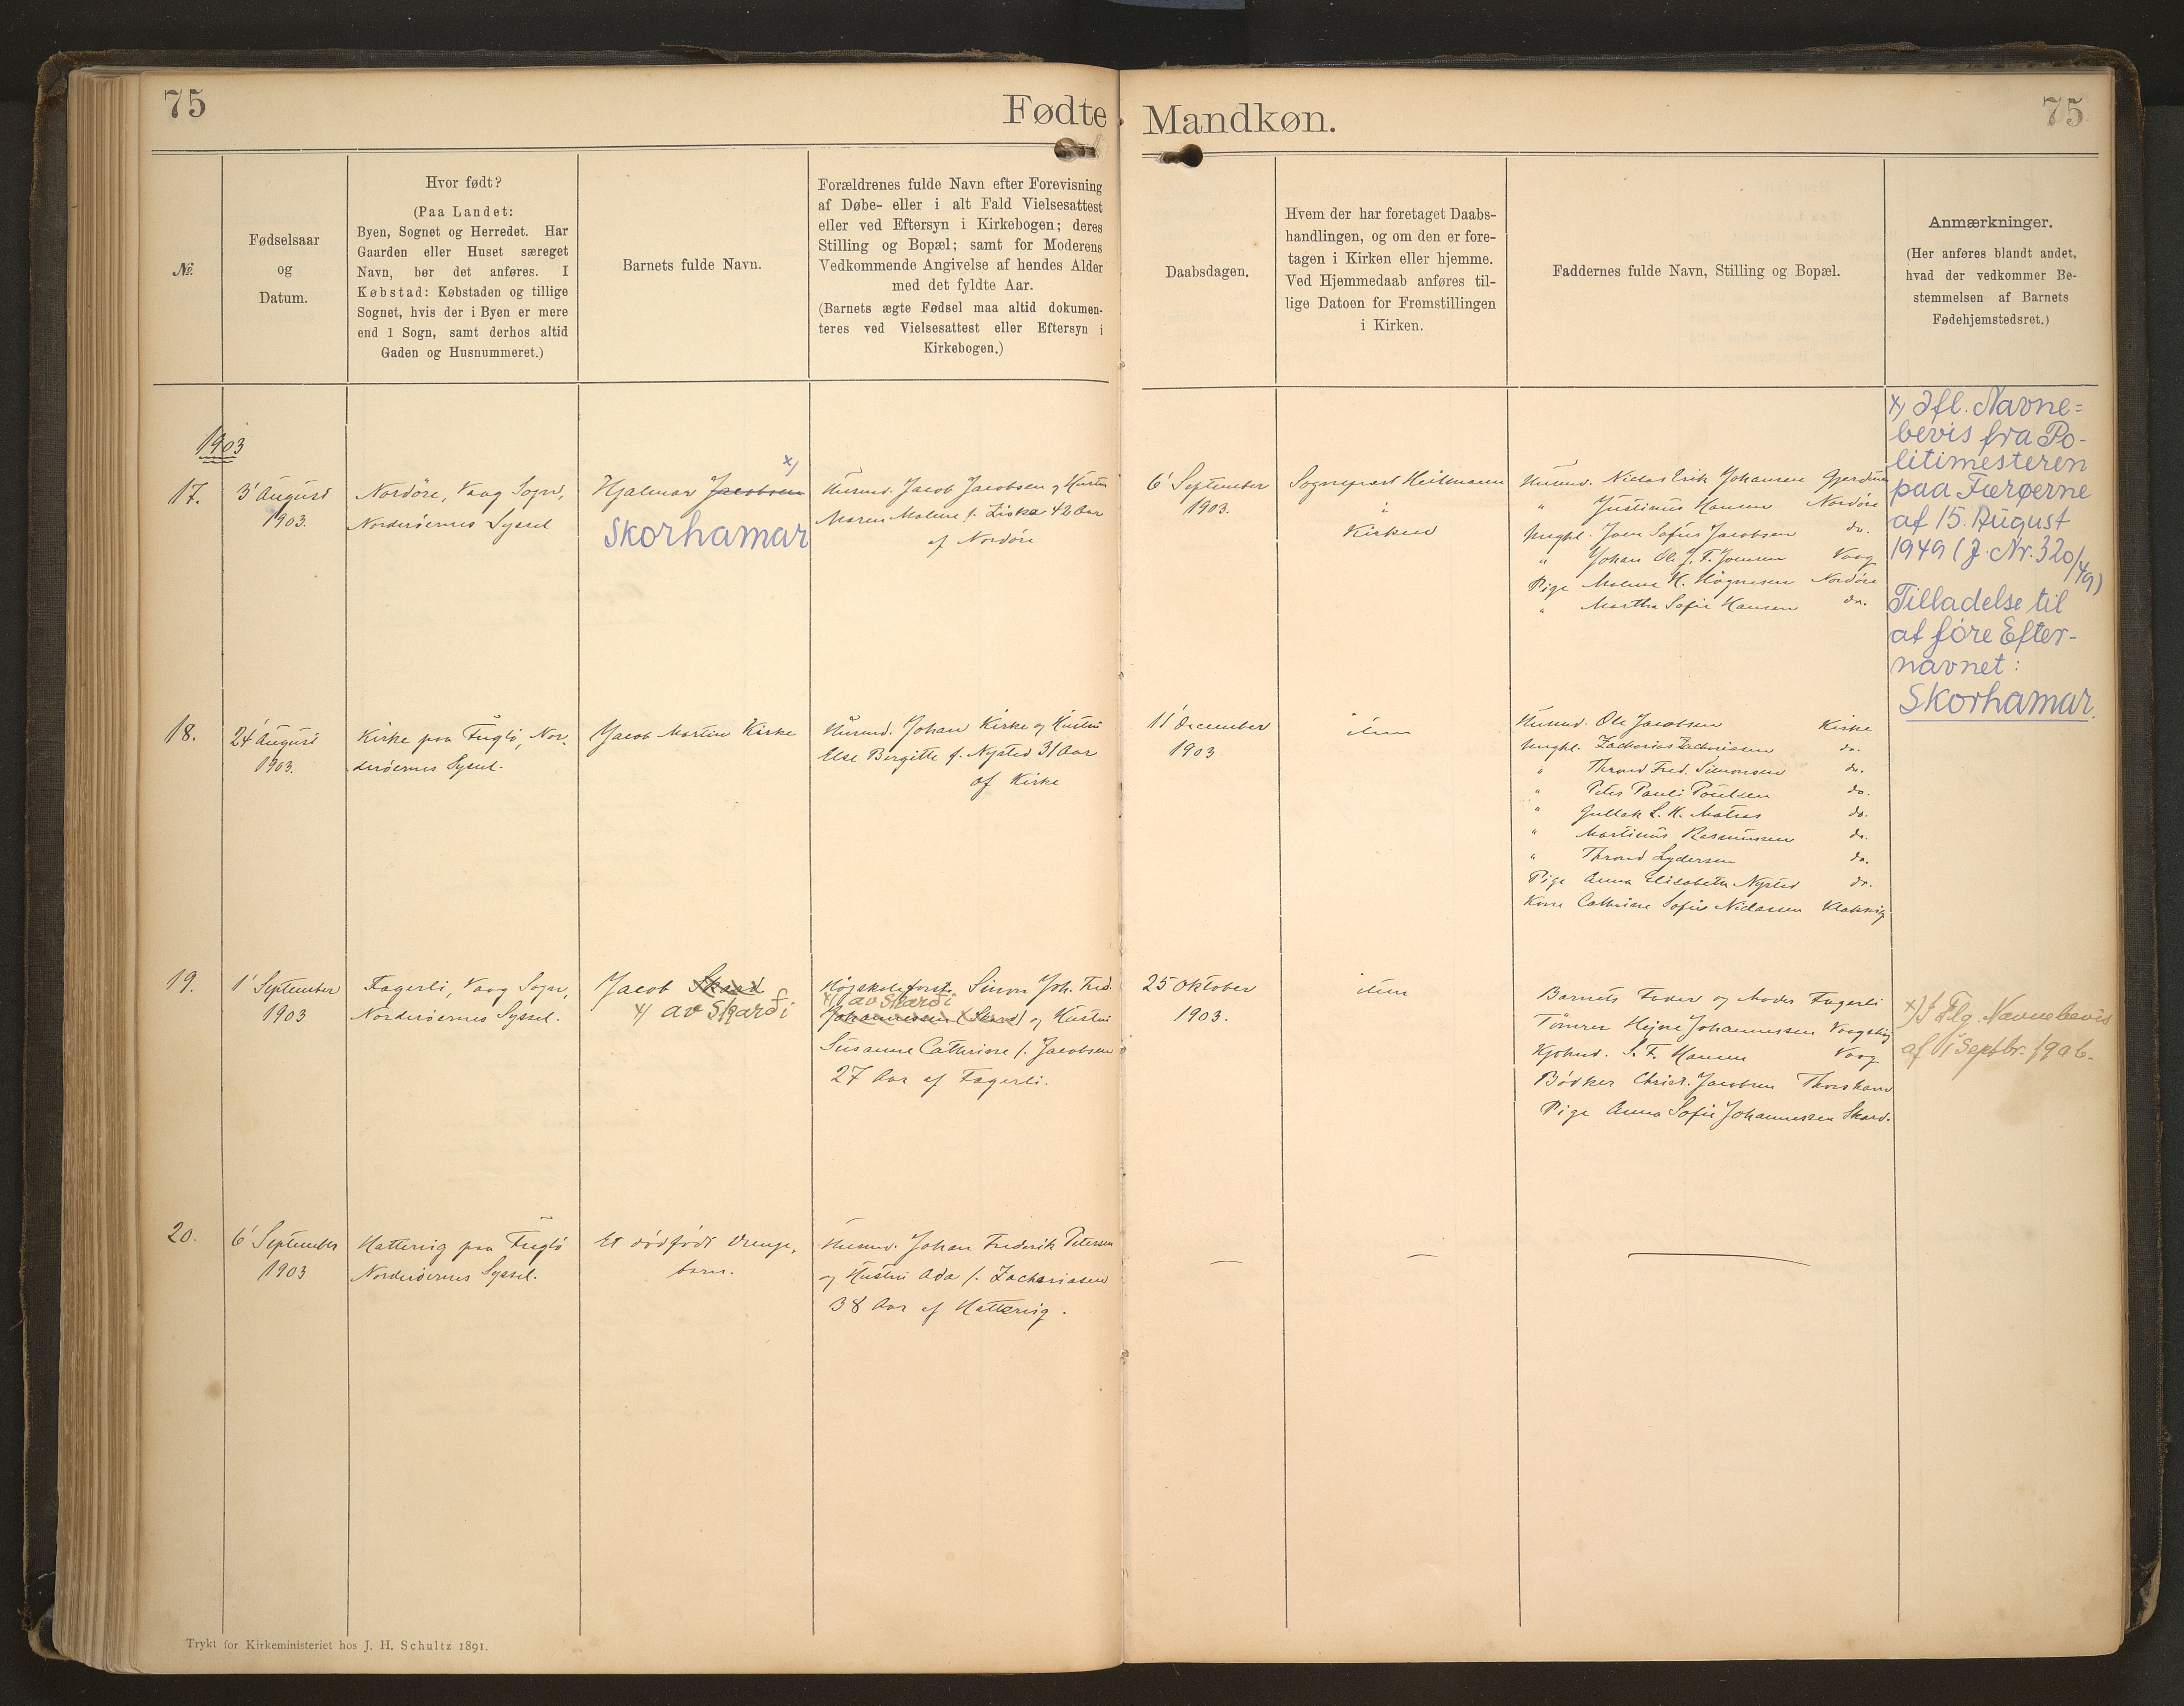 75
Fødte, Mandkøn.
75
Nr.
Fødselsaar
og
Datum.
Hvor født?
(Paa Landet:
Byen, Sognet og Herredet. Har
Gaarden eller Huset særeget
Navn, bør det anføres. I
Købstad: Købstaden og tillige
Sognet, hvis der i Byen er mere
end 1 Sogn, samt derhos altid
Gaden og Husnummeret.)
Barnets fulde Navn.
Forældrenes fulde Navn efter Forevisning
af Døbe- eller i alt Fald Vielsesattest
eller ved Eftersyn i Kirkebogen; deres
Stilling og Bopæl; samt for Moderens
Vedkommende Angivelse af hendes Alder
med det fyldte Aar.
(Barnets ægte Fødsel maa altid dokumen-
teres ved Vielsesattest eller Eftersyn i
Kirkebogen.)
Daabsdagen.
Hvem der har foretaget Daabs-
handlingen, og om den er fore-
tagen i Kirken eller hjemme.
Ved Hjemmedaab anføres til-
lige Datoen for Fremstillingen
i Kirken.
Faddernes fulde Navn, Stilling og Bopæl.
Anmærkninger.
(Her anføres blandt andet,
hvad der vedkommer Be-
stemmelsen af Barnets
Fødehjemstedsret.)
1903
17.
3' August
1903.
Nordöre, Vaag Sogn,
Norderöernes Syssel
x)
Hjalmar Jacobsen
Skorhamar
Husmd. Jacob Jacobsen og Hustru
Maren Malene f. Ziska 42 Aar
af Nordöre
6' September
1903.
Sognepræst Heilmann
i
Kirken
Husmd. Niclas Erik Johansen Gjerdum
" Justinus Hansen Nordöre
Ungkl. Joen Sofus Jacobsen do.
" Johan Ole J. F. Joensen Vaag
Pige Malene H. Högnesen Nordöre
" Martha Sofie Hansen do.
x) Ifl. Navne=
bevis fra Po-
litimesteren
paa Færøerne
af 15. August
1949 (J. Nr. 320/49)
Tilladelse til
at före Efter-
navnet:
Skorhamar.
18.
24' August
1903.
Kirke paa Fuglö, Nor-
deröernes Syssel.
Jacob Martin Kirke
Husmd. Johan Kirke og Hustru
Else Bergitte f. Nysted 31 Aar
af Kirke
11' December
1903
item
Husmd. Ole Jacobsen Kirke
Ungkl. Zacharias Zachariasen do.
" Thrond Fred. Simonsen do.
" Peter Pauli Poulsen do.
" Gullak L. K. Matras do.
" Martinus Rasmussen do.
" Thrond Lydersen do.
Pige Anna Elisabeth Nysted do.
Kone Cathrine Sofie Niclasen Klaksvig
19.
1' September
1903
Fagerli, Vaag Sogn,
Norderöernes Syssel.
Jacob Skard
x) av Skarði
Højskoleforst. Simon Joh. Fred.
x) av Skarði
Johannessen (Skard) og Hustru
Susanne Cathrine f. Jacobsen
27 Aar af Fagerli.
25 Oktober
1903.
item
Barnets Fader og Moder Fagerli
Tömrer Hejne Johannessen Vaagsbög
Kjøbmd. S. F. Hansen Vaag
Bödker Christ. Jacobsen Thorshavn
Pige Anna Sofie Johannessen Skard.
x) I Flg. Navnebevis
af 1 Septbr. 1906.
20.
6' September
1903
Hattervig paa Fuglö
Norderöernes Syssel.
Et dödfödt Drenge-
barn.
Husmd. Johan Frederik Petersen
og Hustru Ada f. Zachariasen
38 Aar af Hattervig.
Trykt for Kirkeministeriet hos J. H. Schultz 1891.